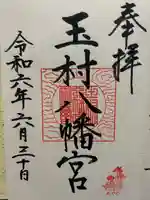 奉拝
玉村八幡宮
令和六年六月三十日